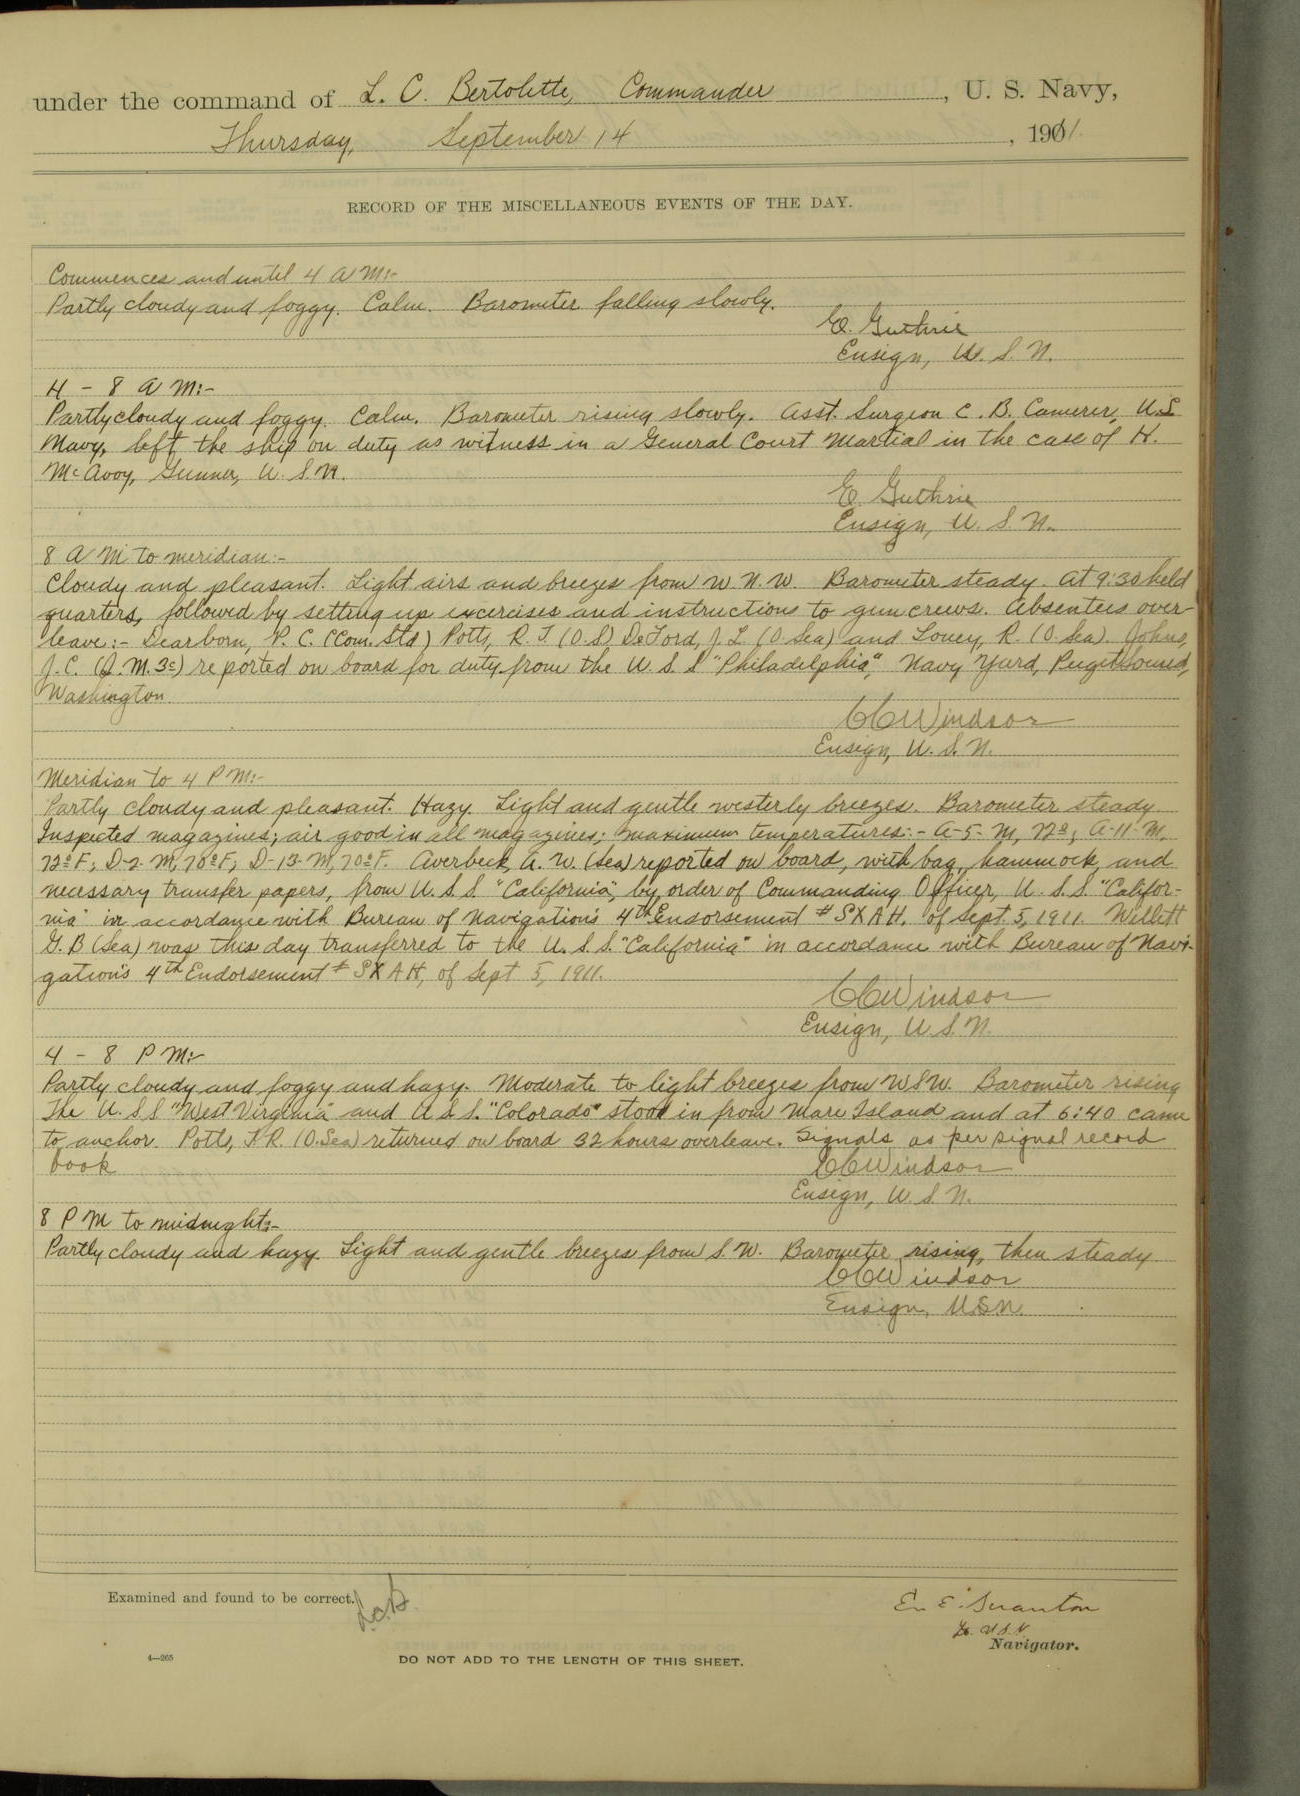 under the command of L. C. Bertolette, Commander, U. S. Navy,
Thursday, September 14, 1911.
RECORD OF THE MISCELLANEOUS EVENTS OF THE DAY.
Commences and until 4 A M:-
Partly cloudy and foggy. Calm. Barometer falling slowly.
E. Guthrie
Ensign, U. S. N.
4 - 8 A M:-
Partly cloudy and foggy. Calm. Barometer rising slowly. Asst. Surgeon C. B. Camerer, U.S
Navy, left the ship on duty as witness in a General Court Martial in the case of H.
McAvoy, Gunner, U. S. N.
E. Guthrie
Ensign, U. S. N.
8 A M to meridian:-
Cloudy and pleasant. Light airs and breezes from W. N. W. Barometer steady. At 9:30 held
quarters, followed by setting up excercises and instructions to gun crews. Absentees over-
leave:- Dearborn, P. C. (Com. Std) Potts, R. T. (O.S) DeFord, J. L. (O. Sea) and Loney, R. (O. Sea). Johns,
J. C. (G. M. 3c) reported on board for duty from the U. S. S "Philadelphia", Navy Yard, Puget Sound,
Washington.
C C Windsor
Ensign, U. S. N.
Meridian to 4 P M:-
Partly cloudy and pleasant. Hazy. Light and gentle westerly breezes. Barometer steady
Inspected magazines; air good in all magazines; maximum temperatures:- A-5-M, 72°; A-11-M,
72°F; D-2-M, 70°F; D-13-M, 70°F. Averbeck, A. W. (Sea) reported on board, with bag, hammock, and
necessary transfer papers, from U. S. S "California", by order of Commanding Officer, U. S. S. "Califor-
nia" in accordance with Bureau of Navigation's 4th Endorsement # S X A H. of Sept. 5, 1911. Willett
G. B (Sea) was this day transferred to the U. S. S. "California" in accordance with Bureau of Navi-
gation's 4th Endorsement # S X A H, of Sept 5, 1911.
C C Windsor
Ensign, U. S. N.
4 - 8 P M:-
Partly cloudy and foggy and hazy. Moderate to light breezes from WSW. Barometer rising
The U. S. S "West Virginia" and U. S. S. "Colorado" stood in from Mare Island and at 6:40 came
to anchor. Potts, T. R. (O. Sea) returned on board 32 hours overleave. Signals as per signal record
book
C C Windsor
Ensign, U. S. N.
8 P M to midnight:-
Partly cloudy and hazy. Light and gentle breezes from S. W. Barometer rising, then steady
C C Windsor
Ensign, U.S.N.
Examined and found to be correct. L.C.B.
E. Scranton
Lt. U.S.N
Navigator.
4—265
DO NOT ADD TO THE LENGTH OF THIS SHEET.